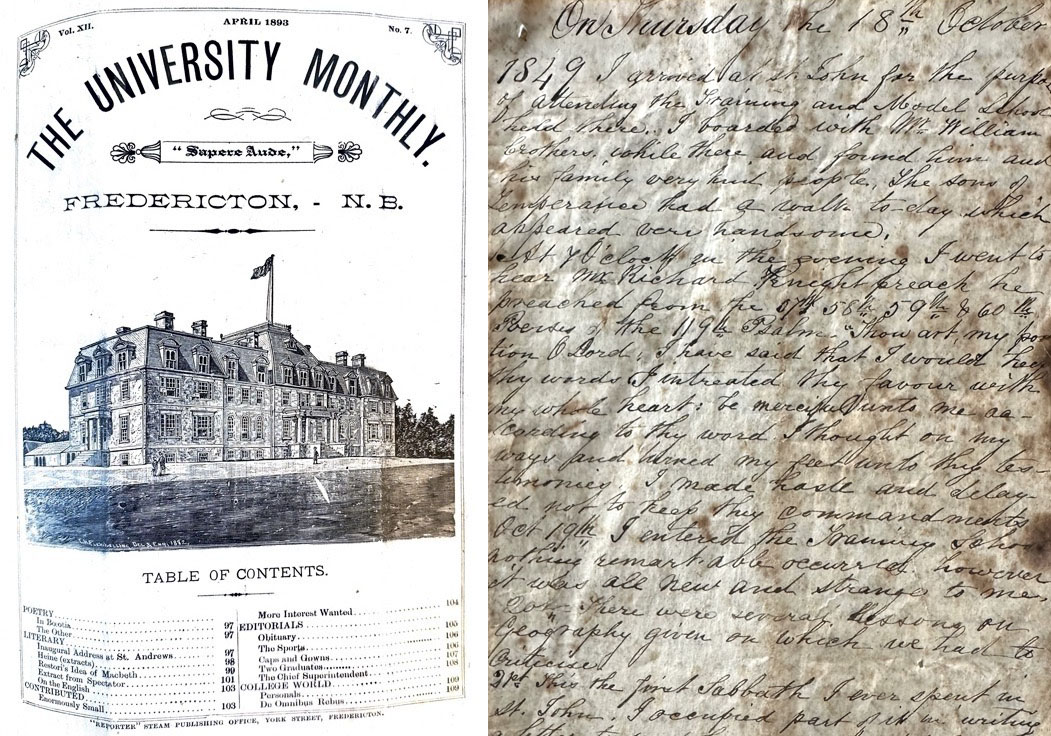 Vol. XII.
APRIL 1893
No. 7.
THE UNIVERSITY MONTHLY.
"Sapere Aude,"
FREDERICTON, - N. B.
TABLE OF CONTENTS.
POETRY
In Bœotia 97
The Other 97
LITERARY
Inaugural Address at St. Andrews 97
Heine (extracts) 98
Restori's Idea of Macbeth 99
Extract from Spectator 101
On the English 103
CONTRIBUTED
Enormously Small 103
More Interest Wanted 104
EDITORIALS 105
Obituary 106
The Sports 106
Caps and Gowns 107
Two Graduates 108
The Chief Superintendent
COLLEGE WORLD 109
Personals 109
De Omnibus Rebus
"REPORTER" STEAM PUBLISHING OFFICE, YORK STREET, FREDERICTON.
On Thursday the 18th October
1849 I arrived at St. John for the purpo
of attending the Training and Model School
held there. I boarded with Mr. William
brothers, while there, and found him and
his family very kind people. The sons of
temperance had a walk to-day which
appeared very handsome.
At 7 O'clock in the evening I went to
hear Mr. Richard Knight preach he
preached from the 57th 58th 59th & 60th
Verses of the 119th Psalm "Thou art my por
tion O Lord, I have said that I would keep
thy words I intreated thy favour with
my whole heart: be merciful unto me ac-
cording to thy word I thought on my
ways and turned my feet unto thy tes-
timonies. I made haste and delay-
ed not to keep thy commandments
Oct 19th I entered the Training Schoo
nothing remarkable occurred, however
it was all new and strange to me.
20th There were several lessons on
Geography given on which we had to
criticise.
21st This the first Sabbath I ever spent in
St. John. I occupied part of it in writing